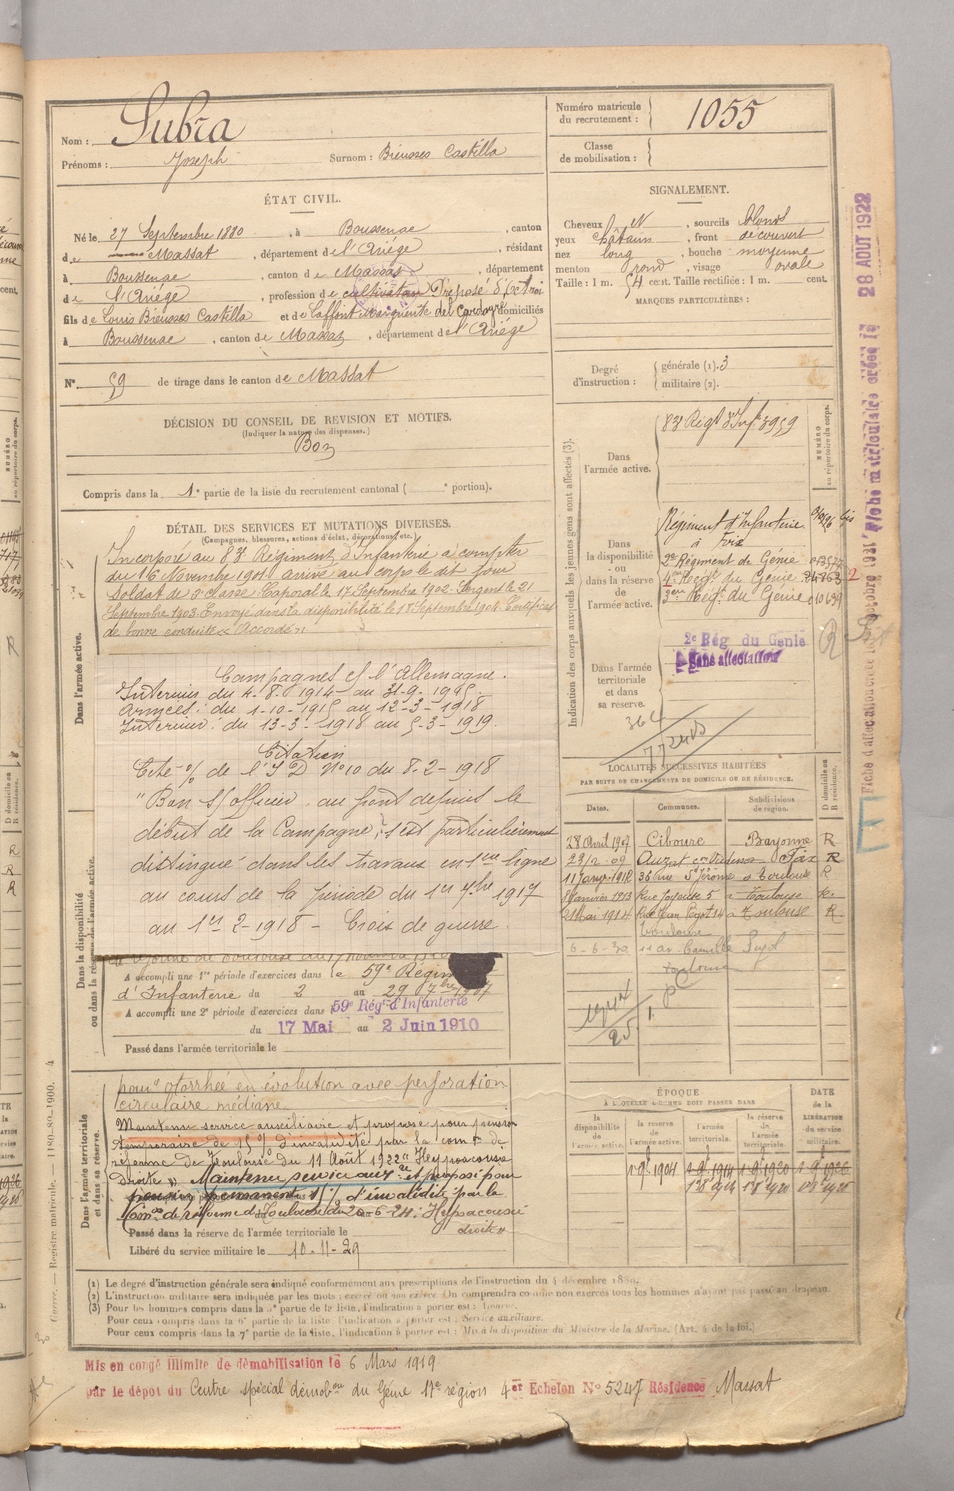 Nom : Subra
Prénoms : Joseph Surnom : Bieusses Castilla
Numéro matricule du recrutement : 1055
Classe de mobilisation :
ÉTAT CIVIL.
Né le 27 Septembre 1880, à Boussenac, canton
de Massat, département de l'Ariége, résidant
à Boussenac, canton de Massat, département
de l'Ariége, profession de cultivateur Préposé d'octroi
fils de Louis Bieusses Castilla et de Laffont Marguerite del Cardayre domiciliés
à Boussenac, canton de Massat, département de l'Ariége
N° 59 de tirage dans le canton de Massat
DÉCISION DU CONSEIL DE REVISION ET MOTIFS.
(Indiquer la nature des dispenses.)
Bon
Compris dans la 1e partie de la liste du recrutement cantonal ( e portion).
SIGNALEMENT.
Cheveux, sourcils blonds
yeux châtain, front découvert
nez long, bouche moyenne
menton rond, visage ovale
Taille : 1 m. 54 cent. Taille rectifiée : 1 m. cent.
MARQUES PARTICULIÈRES :
Degré d'instruction : générale (1). 3
militaire (2).
DÉTAIL DES SERVICES ET MUTATIONS DIVERSES.
(Campagnes, blessures, actions d'éclat, décorations, etc.)
Dans l'armée active.
Incorporé au 83e Régiment d'Infanterie à compter
du 16 Novembre 1901 arrivé au corps le dit jour
Soldat de 2e classe. Caporal le 17 Septembre 1902. Sergent le 21
Septembre 1903. Envoyé dans la disponibilité le 17 Septembre 1904. Certificat
de bonne conduite "Accordé"
Campagnes c/ l'Allemagne.
Intérieur du 4-8-1914 au 31-9-1915.
Armées : du 1-10-1915 au 12-3-1918
Intérieur : du 13-3-1918 au 5-3-1919.
Citation
Cité % de l'I D N°10 du 8-2-1918
"Bon s/officier au front depuis le
début de la Campagne, s'est particulièrement
distingué dans les travaux en 1ère ligne
au cours de la période du 1er 7bre 1917
au 1er 2-1918 - Croix de guerre.
Dans la disponibilité ou dans la réserve de l'armée active.
A accompli une 1re période d'exercices dans le 59e Régim
d'Infanterie du 2 au 29 7bre 1907
A accompli une 2e période d'exercices dans 59e Rég. d'Infanterie
du 17 Mai au 2 Juin 1910
Passé dans l'armée territoriale le
Dans l'armée territoriale et dans sa réserve.
pour otorrhée en évolution avec perforation
circulaire médiane.
Maintenu service auxiliaire et proposé pour pension
temporaire de 15 % d'invalidité par la com on de
réforme de Toulouse du 11 Août 1922 "Hypoacousie
droite". Maintenu service auxre et proposé pour
pension permanente d'invalidité par la
Con de réforme de Toulouse du 20-6-24. Hypoacousie
droite"
Passé dans la réserve de l'armée territoriale le
Libéré du service militaire le 10-11-29
Indication des corps auxquels les jeunes gens sont affectés (3).
NUMÉRO au répertoire du corps.
Dans l'armée active.
83e Régt d'Infie 3959
Dans la disponibilité ou dans la réserve de l'armée active.
Régiment d'Infanterie
à Foix
2e Régiment de Génie
4ème Régt du Génie
3ème Régt du Génie
Dans l'armée territoriale et dans sa réserve.
2e Rég du Génie
Sans affectation
364
LOCALITÉS SUCCESSIVES HABITÉES
PAR SUITE DE CHANGEMENTS DE DOMICILE OU DE RÉSIDENCE.
Dates. Communes. Subdivisions de région. D domicile ou R résidence.
28 Avril 1907 Ciboure Bayonne R
23/2-09 Auzat en Vicdessos Foix R
36 rue St Jérôme à Toulouse R
Janvier 1913 Rue Joyeuse 5 à Toulouse R.
21 Mai 1914 à Toulouse R
Toulouse
6-6-30 11 av. Camille Pujol
Toulouse
ÉPOQUE
À LAQUELLE L'HOMME DOIT PASSER DANS
la disponibilité de l'armée active. la réserve de l'armée active. l'armée territoriale. la réserve de l'armée territoriale. DATE de la LIBÉRATION du service militaire.
(1) Le degré d'instruction générale sera indiqué conformément aux prescriptions de l'instruction du 4 décembre 1889.
(2) L'instruction militaire sera indiquée par les mots : exercé ou non exercé. On comprendra comme non exercés tous les hommes n'ayant pas passé au drapeau.
(3) Pour les hommes compris dans la 5e partie de la liste, l'indication à porter est :
Pour ceux compris dans la 6e partie de la liste, l'indication à porter est : Service auxiliaire.
Pour ceux compris dans la 7e partie de la liste, l'indication à porter est : Mis à la disposition du Ministre de la Marine. (Art. 4 de la loi.)
Mis en congé illimité de démobilisation le 6 Mars 1919
par le dépôt du Centre spécial démobon du Génie 17e région 4er Echelon N° 5247 Résidence Massat
28 AOUT 1922